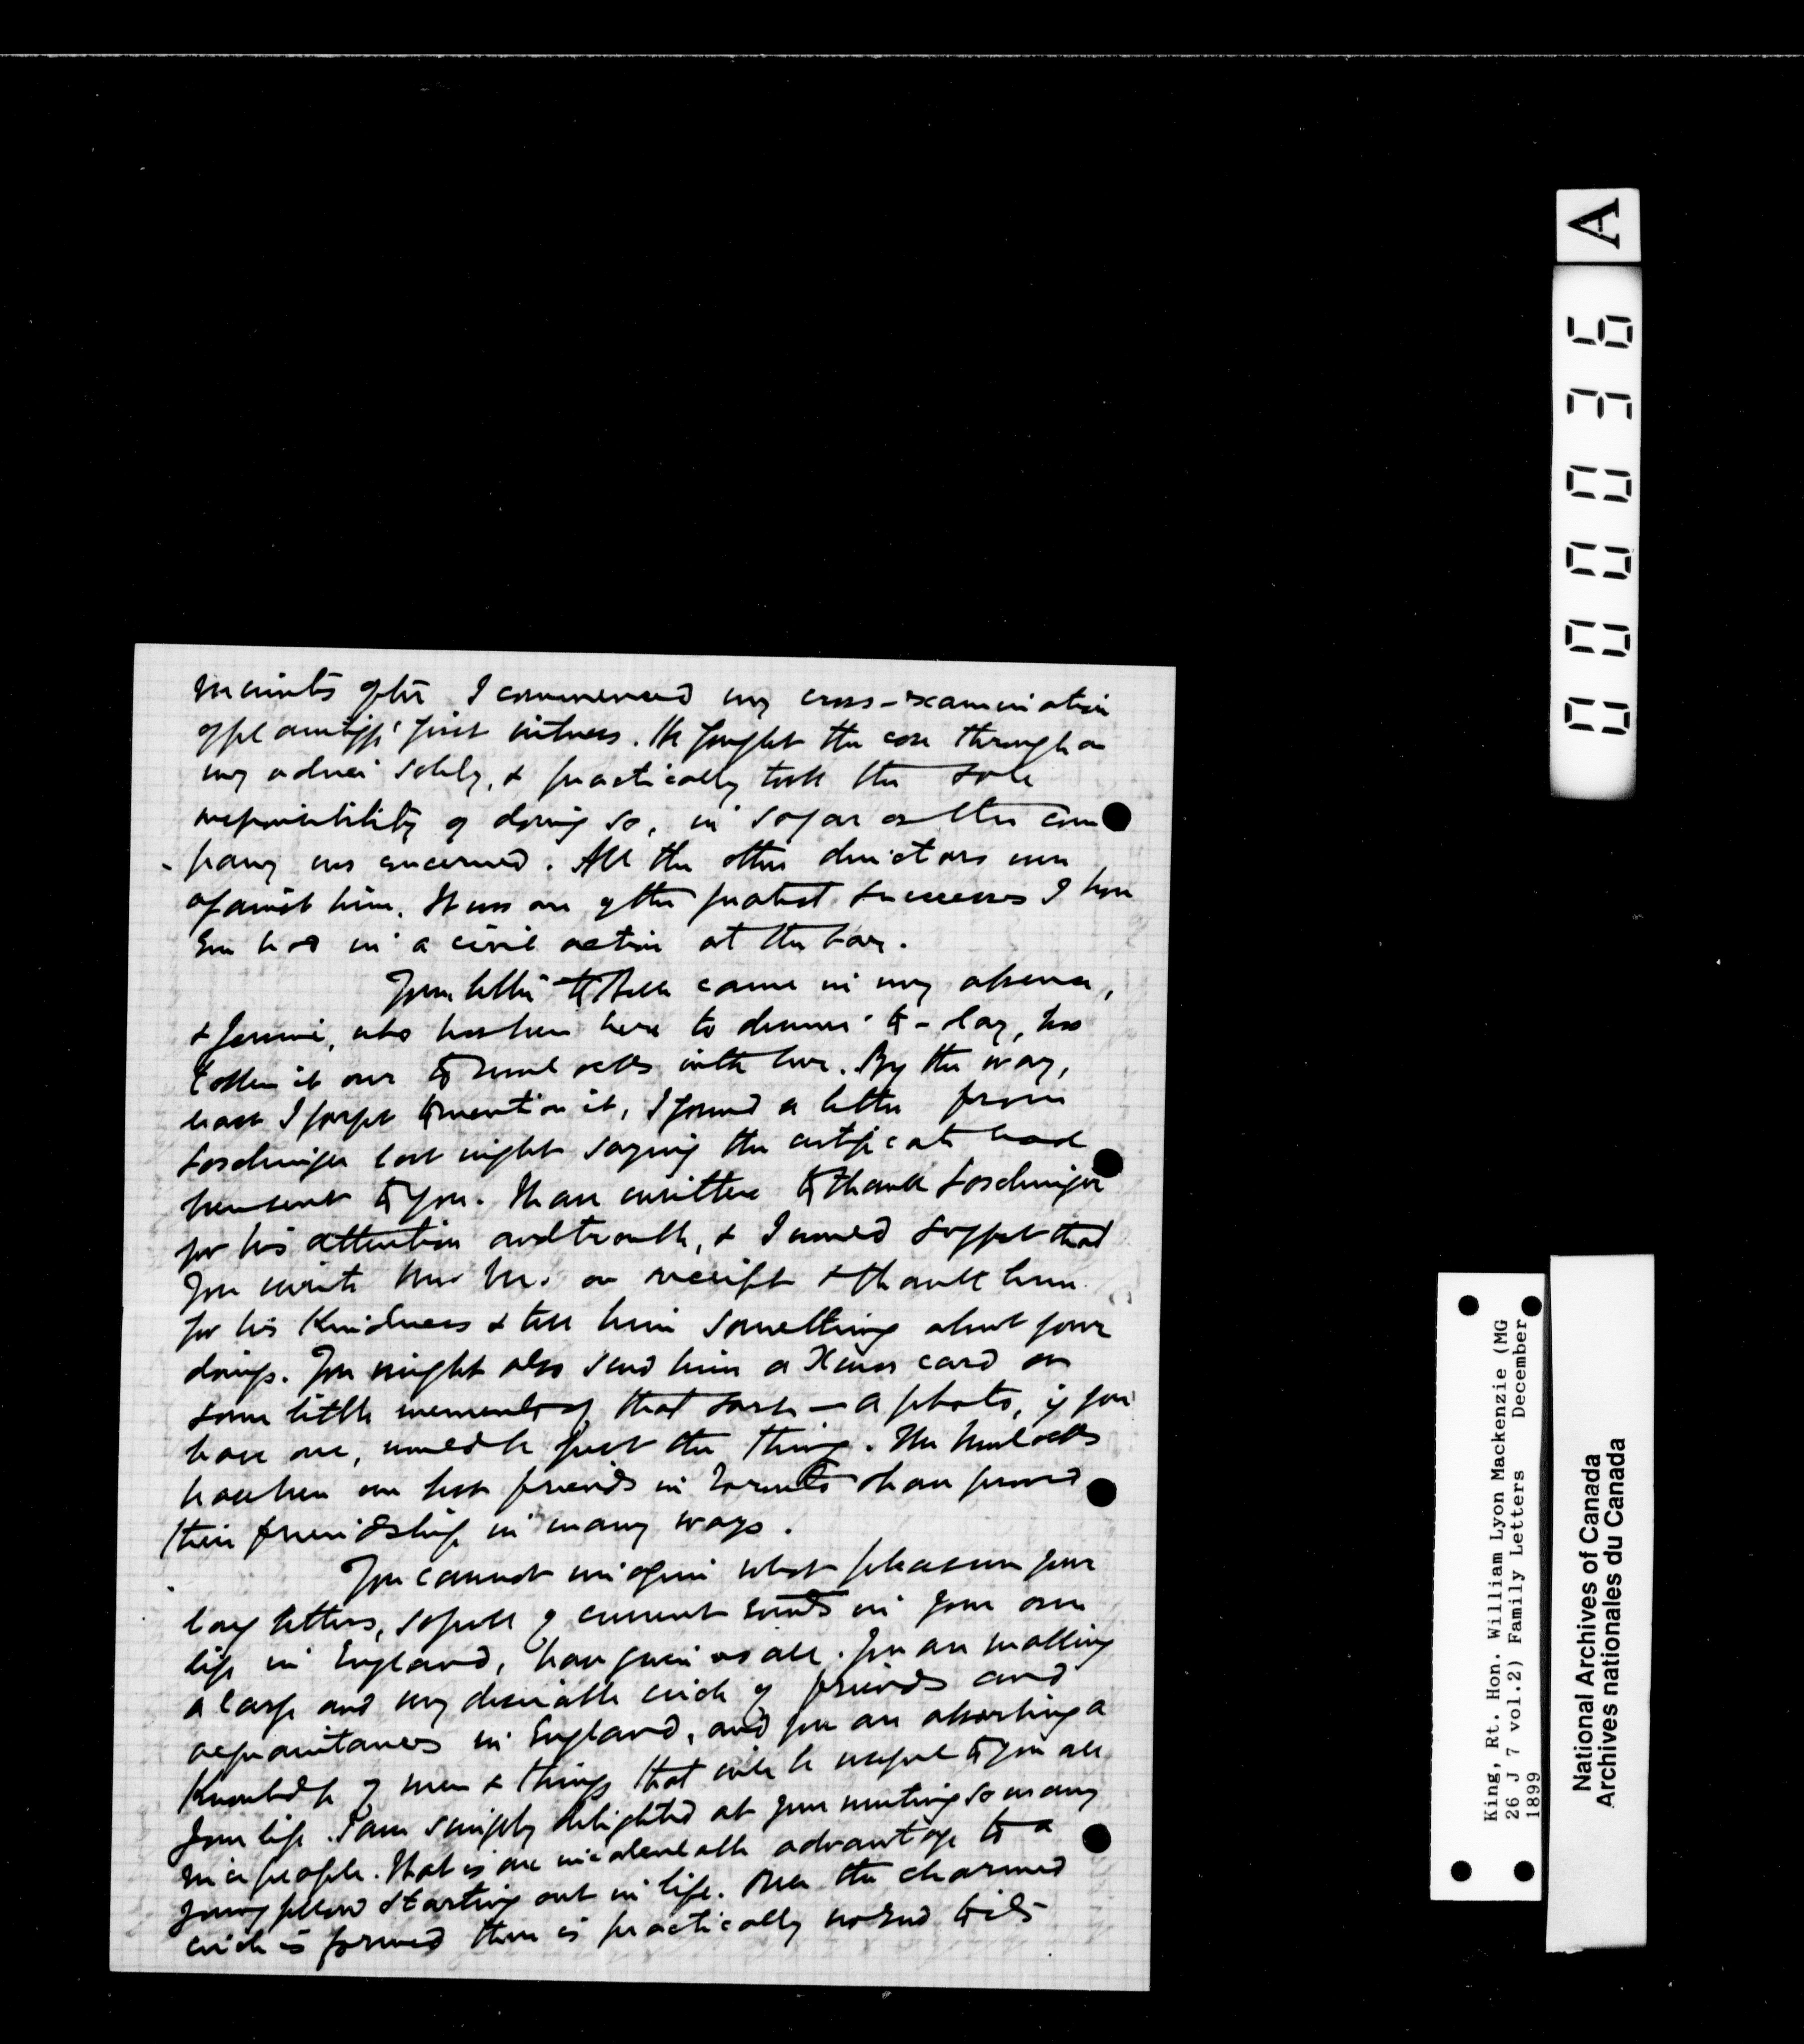 minutes after I commenced my cross-examination
of plaintiffs' first witness. He fought the case through on
my advice solely, & practically took the sole
responsibility of doing so, in so far as the com
-pany was concerned. All the other directors were
against him. It was one of the greatest successes I have
ever had in a civil action at the bar.
Your letter to Bell came in my absence,
& Jennie, who has been here to dinner to-day, has
taken it over to Mulocks with her. By the way,
least I forget to mention it, I found a letter from
last night saying the certificate had
been sent to you. I have written to thank
for his attention and trouble, & I would suggest that
you write him on receipt & thank him
for his kindness & tell him something about your
doings. You might also send him a Xmas card or
some little memento of that sort — a photo, if you
have one, would be just the thing. The Mulocks
have been our best friends in Toronto & have proved
their friendship in many ways.
You cannot imagine what pleasure your
long letters, so full of current events in your own
life in England, have given us all. You are making
a large and very desirable circle of friends and
acquaintances in England, and you are absorbing a
knowledge of men & things that will be useful to you all
your life. I am simply delighted at your meeting so many
nice people. That is one incalculable advantage to a
young fellow starting out in life. Once the charmed
circle is formed there is practically no end to its
A
000036
King, Rt. Hon. William Lyon Mackenzie (MG
26 J 7 vol.2) Family Letters December
1899
National Archives of Canada
Archives nationales du Canada